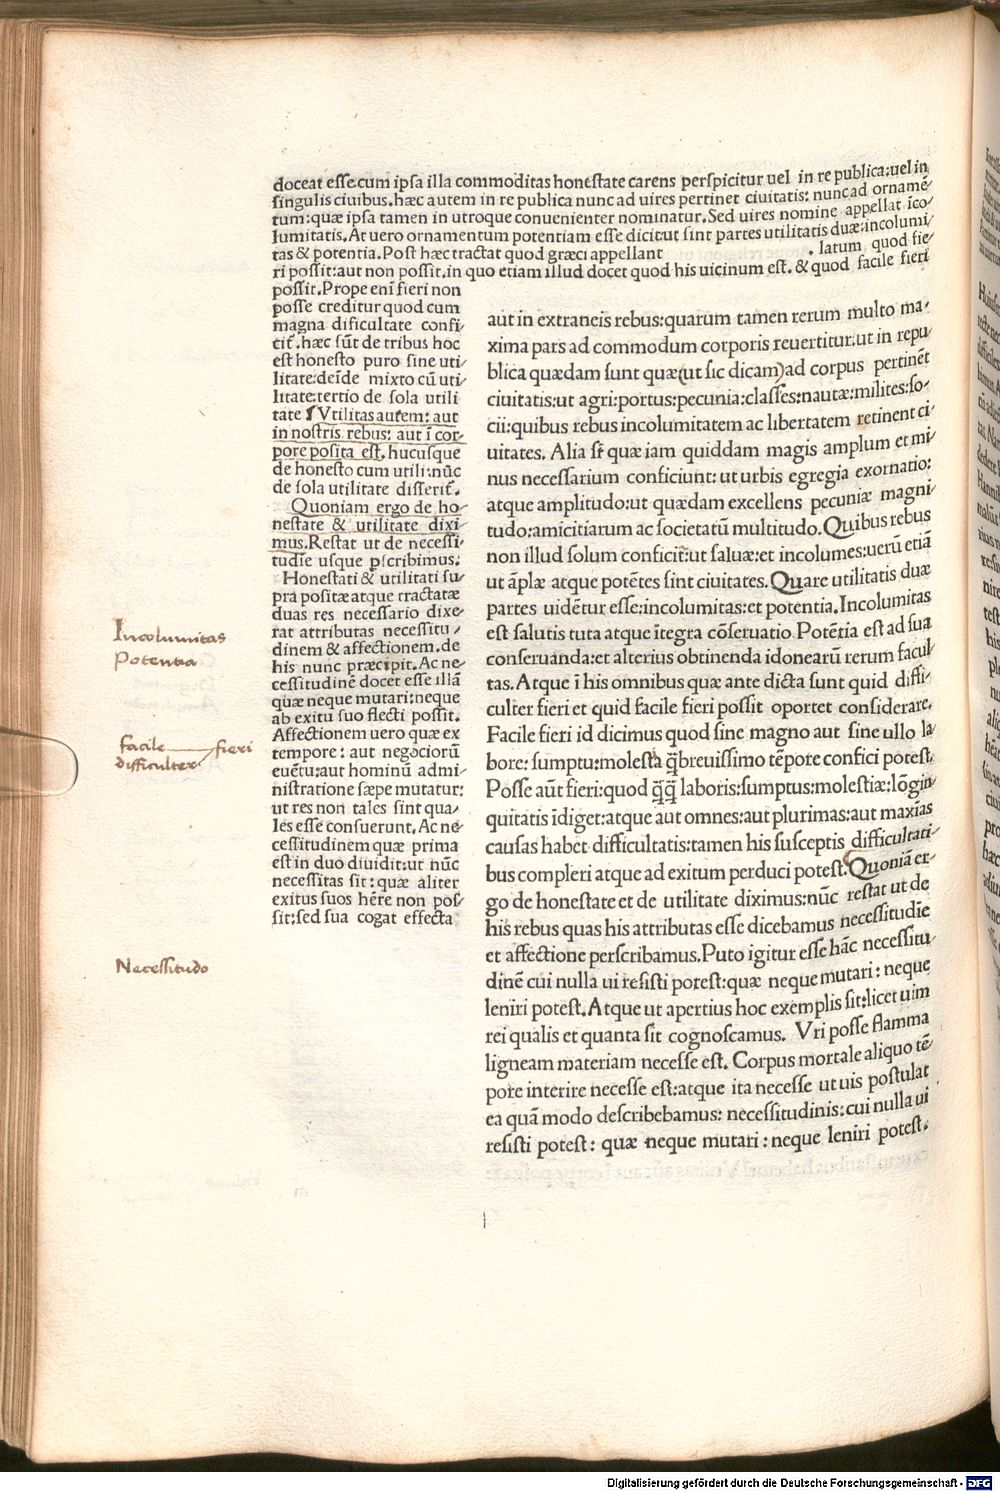 doceat esse.cum ipsa illa commoditas honestate carens perspicitur uel in re publica:uel in
singulis ciuibus.hæc autem in re publica nunc ad uires pertinet ciuitatis: nunc ad ornamē/
tum:quæ ipsa tamen in utroque conuenienter nominatur.Sed uires nomine appellat ico/
lumitatis.At uero ornamentum potentiam esse dicit:ut sint partes utilitatis duæ:incolumi/
tas & potentia.Post hæc tractat quod græci appellant . latum quod fie/
ri possit:aut non possit.in quo etiam illud docet quod his uicinum est. & quod facile fieri
possit.Prope eni fieri non
posse creditur quod cum
magna dificultate confi/
cit̄.hæc sūt de tribus hoc
est honesto puro sine uti/
litate:deīde mixto cū uti/
litate:tertio de sola utili
tate ¶Vtilitas autem: aut
in nostris rebus: aut ī cor/
pore posita est. hucusque
de honesto cum utili:nūc
de sola utilitate disserit̄.
Quoniam ergo de ho/
nestate & utilitate dixi/
mus.Restat ut de necessi/
tudīe usque pscribimus:
Honestati & utilitati su/
pra positæ atque tractatæ
duas res necessario dixe/
rat attributas necessitu/
dinem & affectionem.de
his nunc præcipit.Ac ne/
cessitudinē docet esse illā
quæ neque mutari:neque
ab exitu suo flecti possit.
Affectionem uero quæ ex
tempore: aut negociorū
euētu:aut hominū admi/
nistratione sæpe mutatur:
ut res non tales sint qua/
les esse consuerunt. Ac ne/
cessitudinem quæ prima
est in duo diuidit:ut nūc
necessitas sit: quæ aliter
exitus suos hēre non pos/
sit:sed sua cogat effecta
aut in extraneis rebus:quarum tamen rerum multo ma/
xima pars ad commodum corporis reuertitur:ut in repu/
blica quædam sunt quæ(ut sic dicam)ad corpus pertinēt
ciuitatis:ut agri:portus:pecunia:classes:nautæ:milites:so/
cii:quibus rebus incolumitatem ac libertatem retinent ci/
uitates. Alia sr̄ quæ iam quiddam magis amplum et mi/
nus necessarium conficiunt: ut urbis egregia exornatio:
atque amplitudo:ut quædam excellens pecuniæ magni/
tudo:amicitiarum ac societatū multitudo.Quibus rebus
non illud solum conficit̄:ut saluæ:et incolumes:uerū etiā
ut āplæ atque potētes sint ciuitates. Quare utilitatis duæ
partes uidētur esse:incolumitas:et potentia.Incolumitas
est salutis tuta atque ītegra cōseruatio Potētia est ad sua
conseruanda:et alterius obtinenda idonearū rerum facul/
tas.Atque ī his omnibus quæ ante dicta sunt quid diffi/
culter fieri et quid facile fieri possit oportet considerare.
Facile fieri id dicimus quod sine magno aut sine ullo la/
bore: sumptu:molesta q̄breuissimo tēpore confici potest.
Posse aūt fieri:quod q̄q̄ laboris:sumptus:molestiæ:lōgin/
quitatis īdiget:atque aut omnes:aut plurimas:aut maxīas
causas habet difficultatis:tamen his susceptis difficultati/
bus compleri atque ad exitum perduci potest.Quoniā er/
go de honestate et de utilitate diximus:nūc restat ut de
his rebus quas his attributas esse dicebamus necessitudīe
et affectione perscribamus.Puto igitur esse hāc necessitu/
dinē cui nulla ui resisti potest:quæ neque mutari: neque
leniri potest.Atque ut apertius hoc exemplis sit:licet uim
rei qualis et quanta sit cognoscamus. Vri posse flamma
ligneam materiam necesse est. Corpus mortale aliquo tē/
pore interire necesse est:atque ita necesse ut uis postulat
ea quā modo describebamus: necessitudinis:cui nulla ui
resisti potest: quæ neque mutari: neque leniri potest.
Incolumitas
Potentia
facile fieri
difficulter
Necessitudo